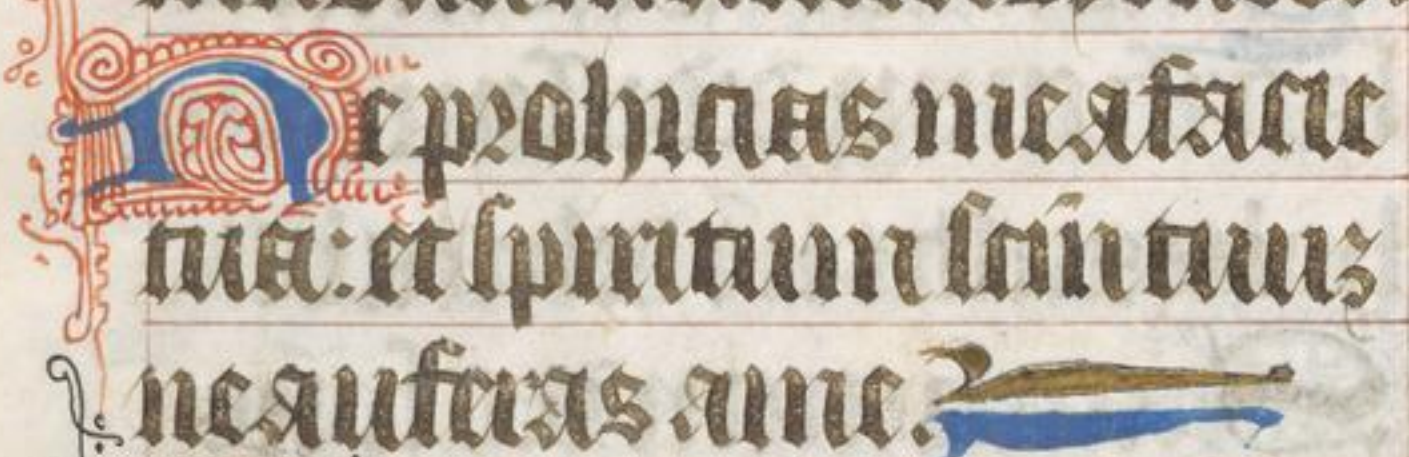 Ne prohicias me a facie
tua: et spiritum sc̄m tuuʒ
ne auferas a me.